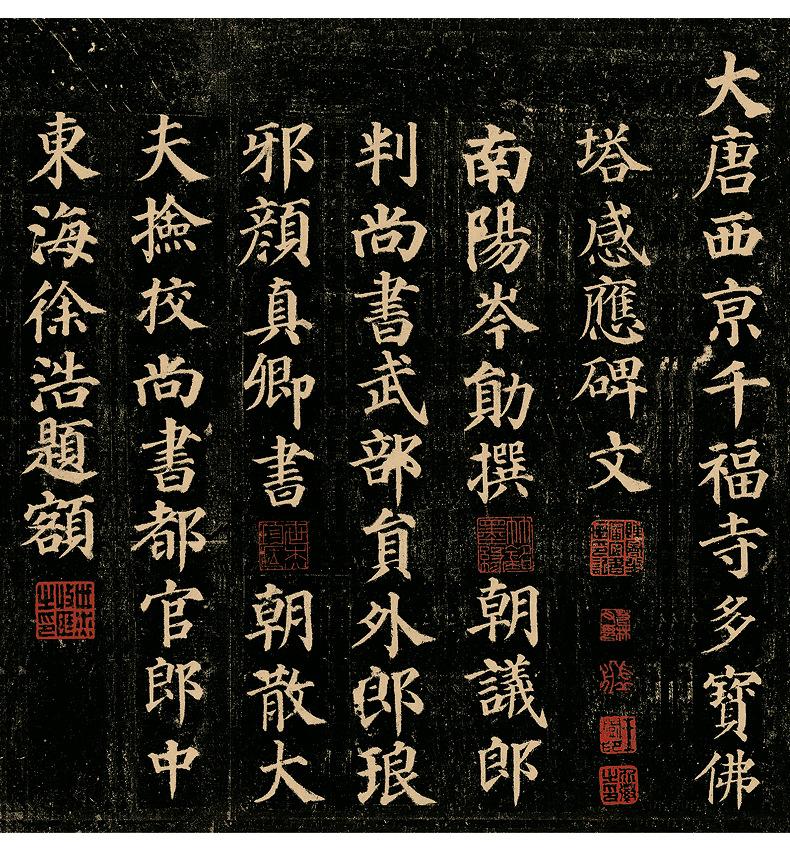 大唐西京千福寺多寶佛
塔感應碑文
南陽岑勛撰 朝議郎
判尚書武部員外郎琅
邪顏真卿書 朝散大
夫撿校尚書都官郎中
東海徐浩題額